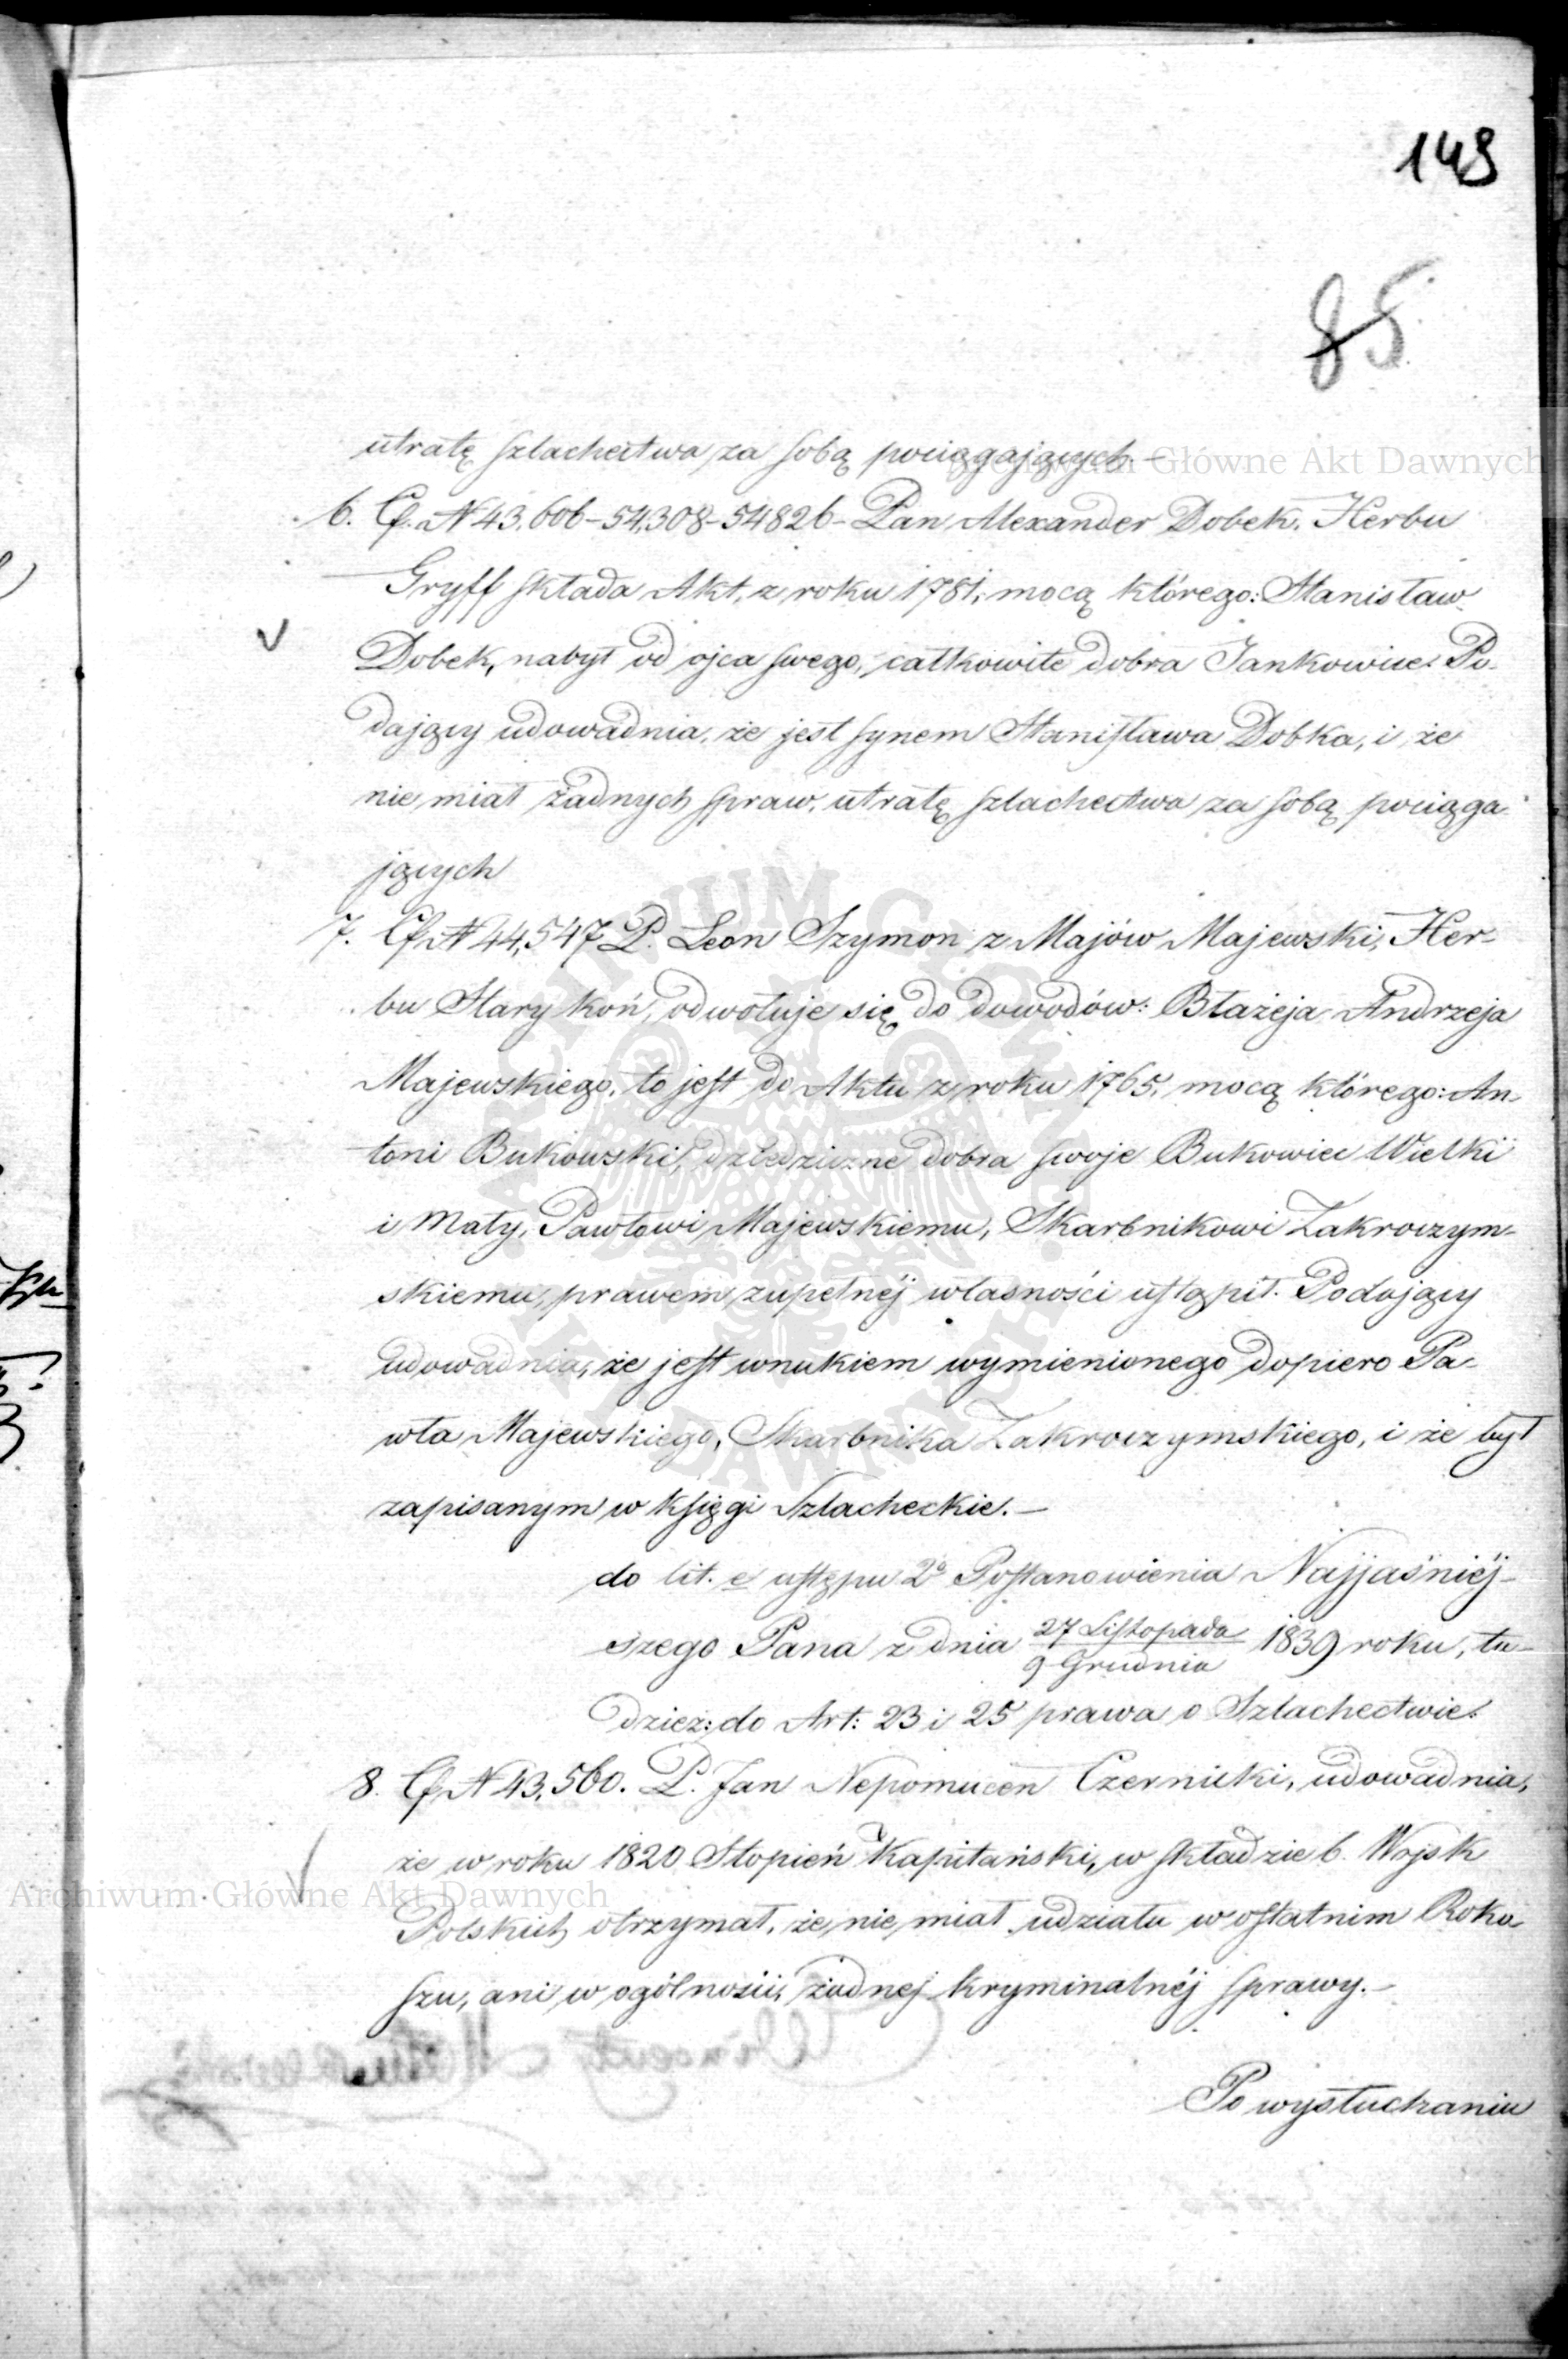 149
85
utratę szlachectwa za sobą pociągających –
Archiwum Główne Akt Dawnych
6. Cf. N 43,606 – 54,308 – 54826 – Pan Alexander Dobek, Herbu
Gryff składa Akt, z roku 1781, mocą którego: Stanisław
Dobek, nabył od ojca swego, całkowite dobra Jankowice. Po-
dający udowadnia, że jest synem Stanisława Dobka, i że
nie miał żadnych spraw, utratę szlachectwa za sobą pociąga-
jących
7. Cf N 44,547 P. Leon Szymon z Majów Majewski, Her-
bu Stary koń, odwołuje się do dowodów: Błażeja Andrzeja
Majewskiego, to jest do Aktu z roku 1765, mocą którego: An-
toni Bukowski, dziedziczne dobra swoje Bukowiec Wielki
i Mały, Pawłowi Majewskiemu, Skarbnikowi Zakroczym-
skiemu, prawem zupełnéj własności ustąpił. Podający
udowadnia, że jest wnukiem wymienionego dopiero Pa-
wła Majewskiego, Skarbnika Zakroczymskiego, i że był
zapisanym w księgi Szlacheckie. –
do lit. e ustępu 2º Postanowienia Najjaśniéj-
szego Pana z dnia 27 Listopada / 9 Grudnia 1839 roku, tu-
dzież: do Art: 23 i 25 prawa o Szlachectwie.
8. Cf N 43,560. P. Jan Nepomucen Czernicki, udowadnia,
że w roku 1820 Stopień Kapitański, w składzie b. Wojsk
Archiwum Główne Akt Dawnych
Polskich otrzymał, że nie miał udziału w ostatnim Roko-
szu, ani w ogólności, żadnej kryminalnéj sprawy. –
Po wysłuchaniu
ARCHIWUM GŁÓWNE AKT DAWNYCH